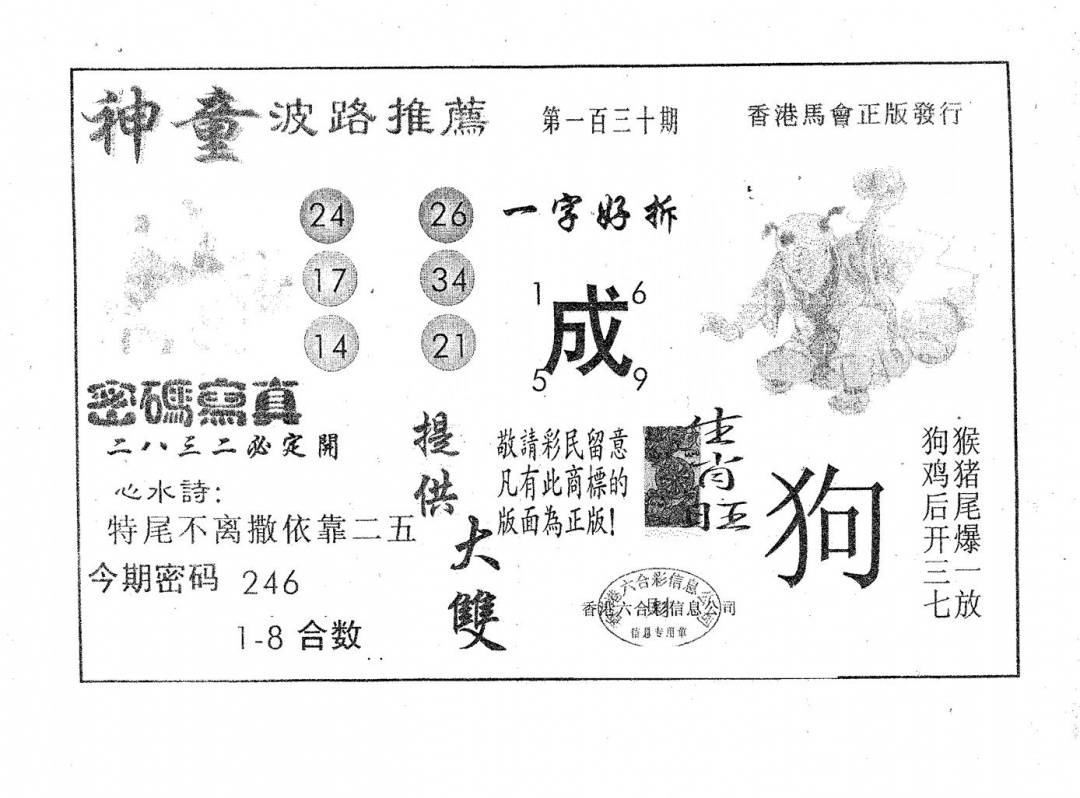 神童波路推薦
第一百三十期
香港馬會正版發行
24 26
17 34
14 21
一字好拆
1 6
成
5 9
密碼寫真
二八三二必定開
心水詩:
特尾不离撒依靠二五
今期密码 246
1-8 合数
提供
大雙
敬請彩民留意
凡有此商標的
版面為正版!
佳肖旺
狗
猴猪尾爆一放
狗鸡后开三七
香港六合彩信息公司
香港六合彩信息公司
信息专用章